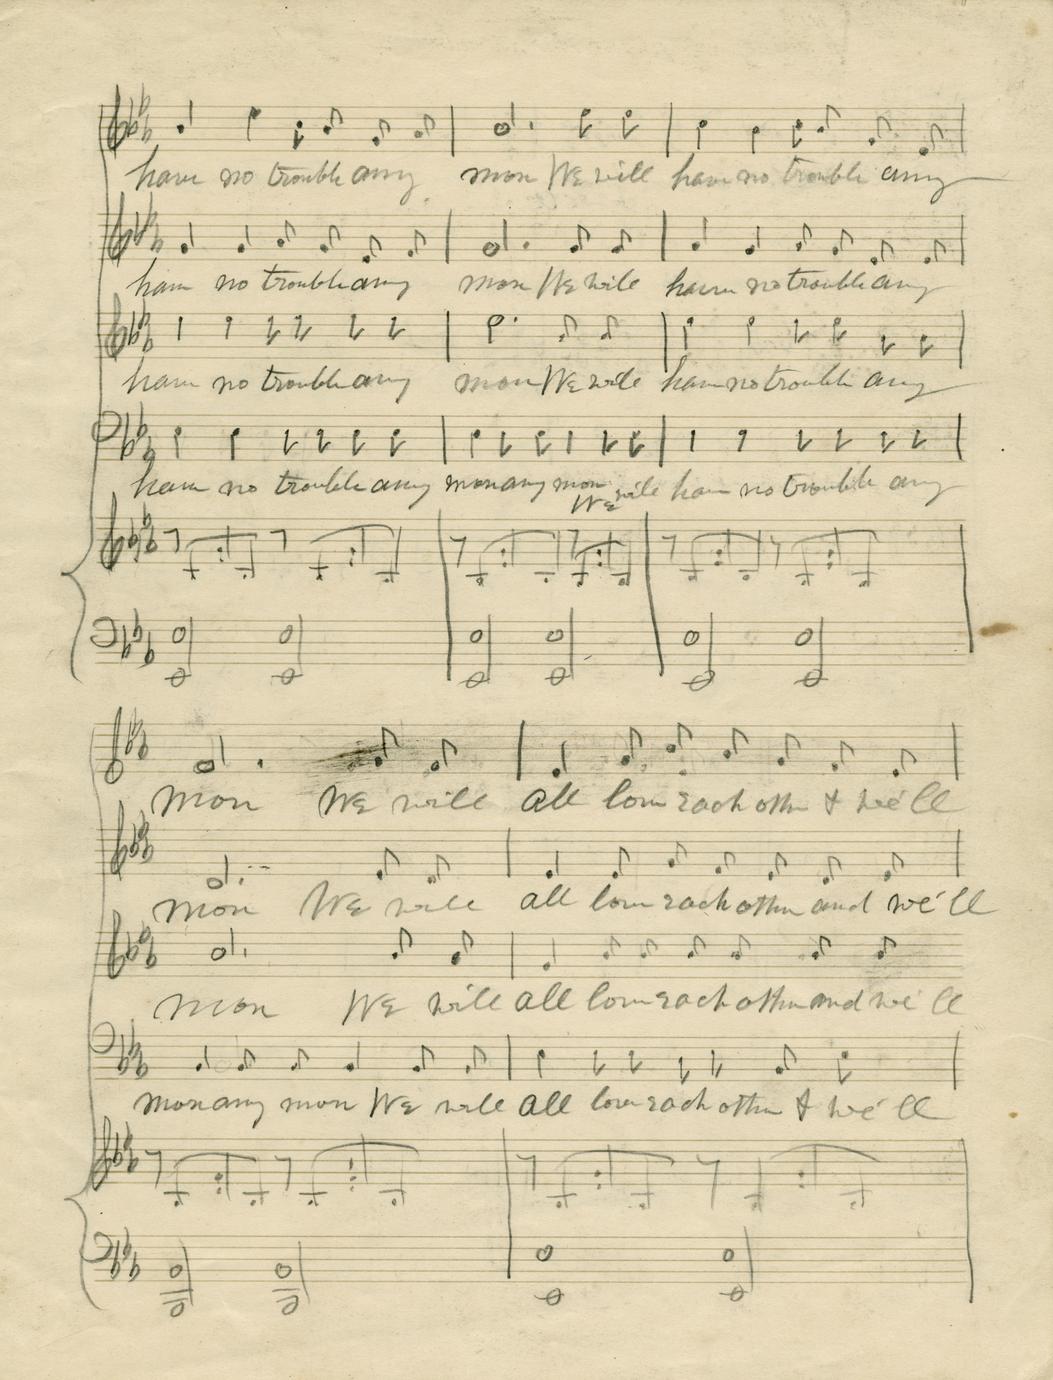 have no trouble any mon We will have no trouble any
have no trouble any mon We will have no trouble any
have no trouble any mon We will have no trouble any
have no trouble any mon any mon We will have no trouble any
Mon We will all love each other & we'll
mon We will all love each other and we'll
mon We will all love each other and we'll
mon any mon We will all love each other & we'll